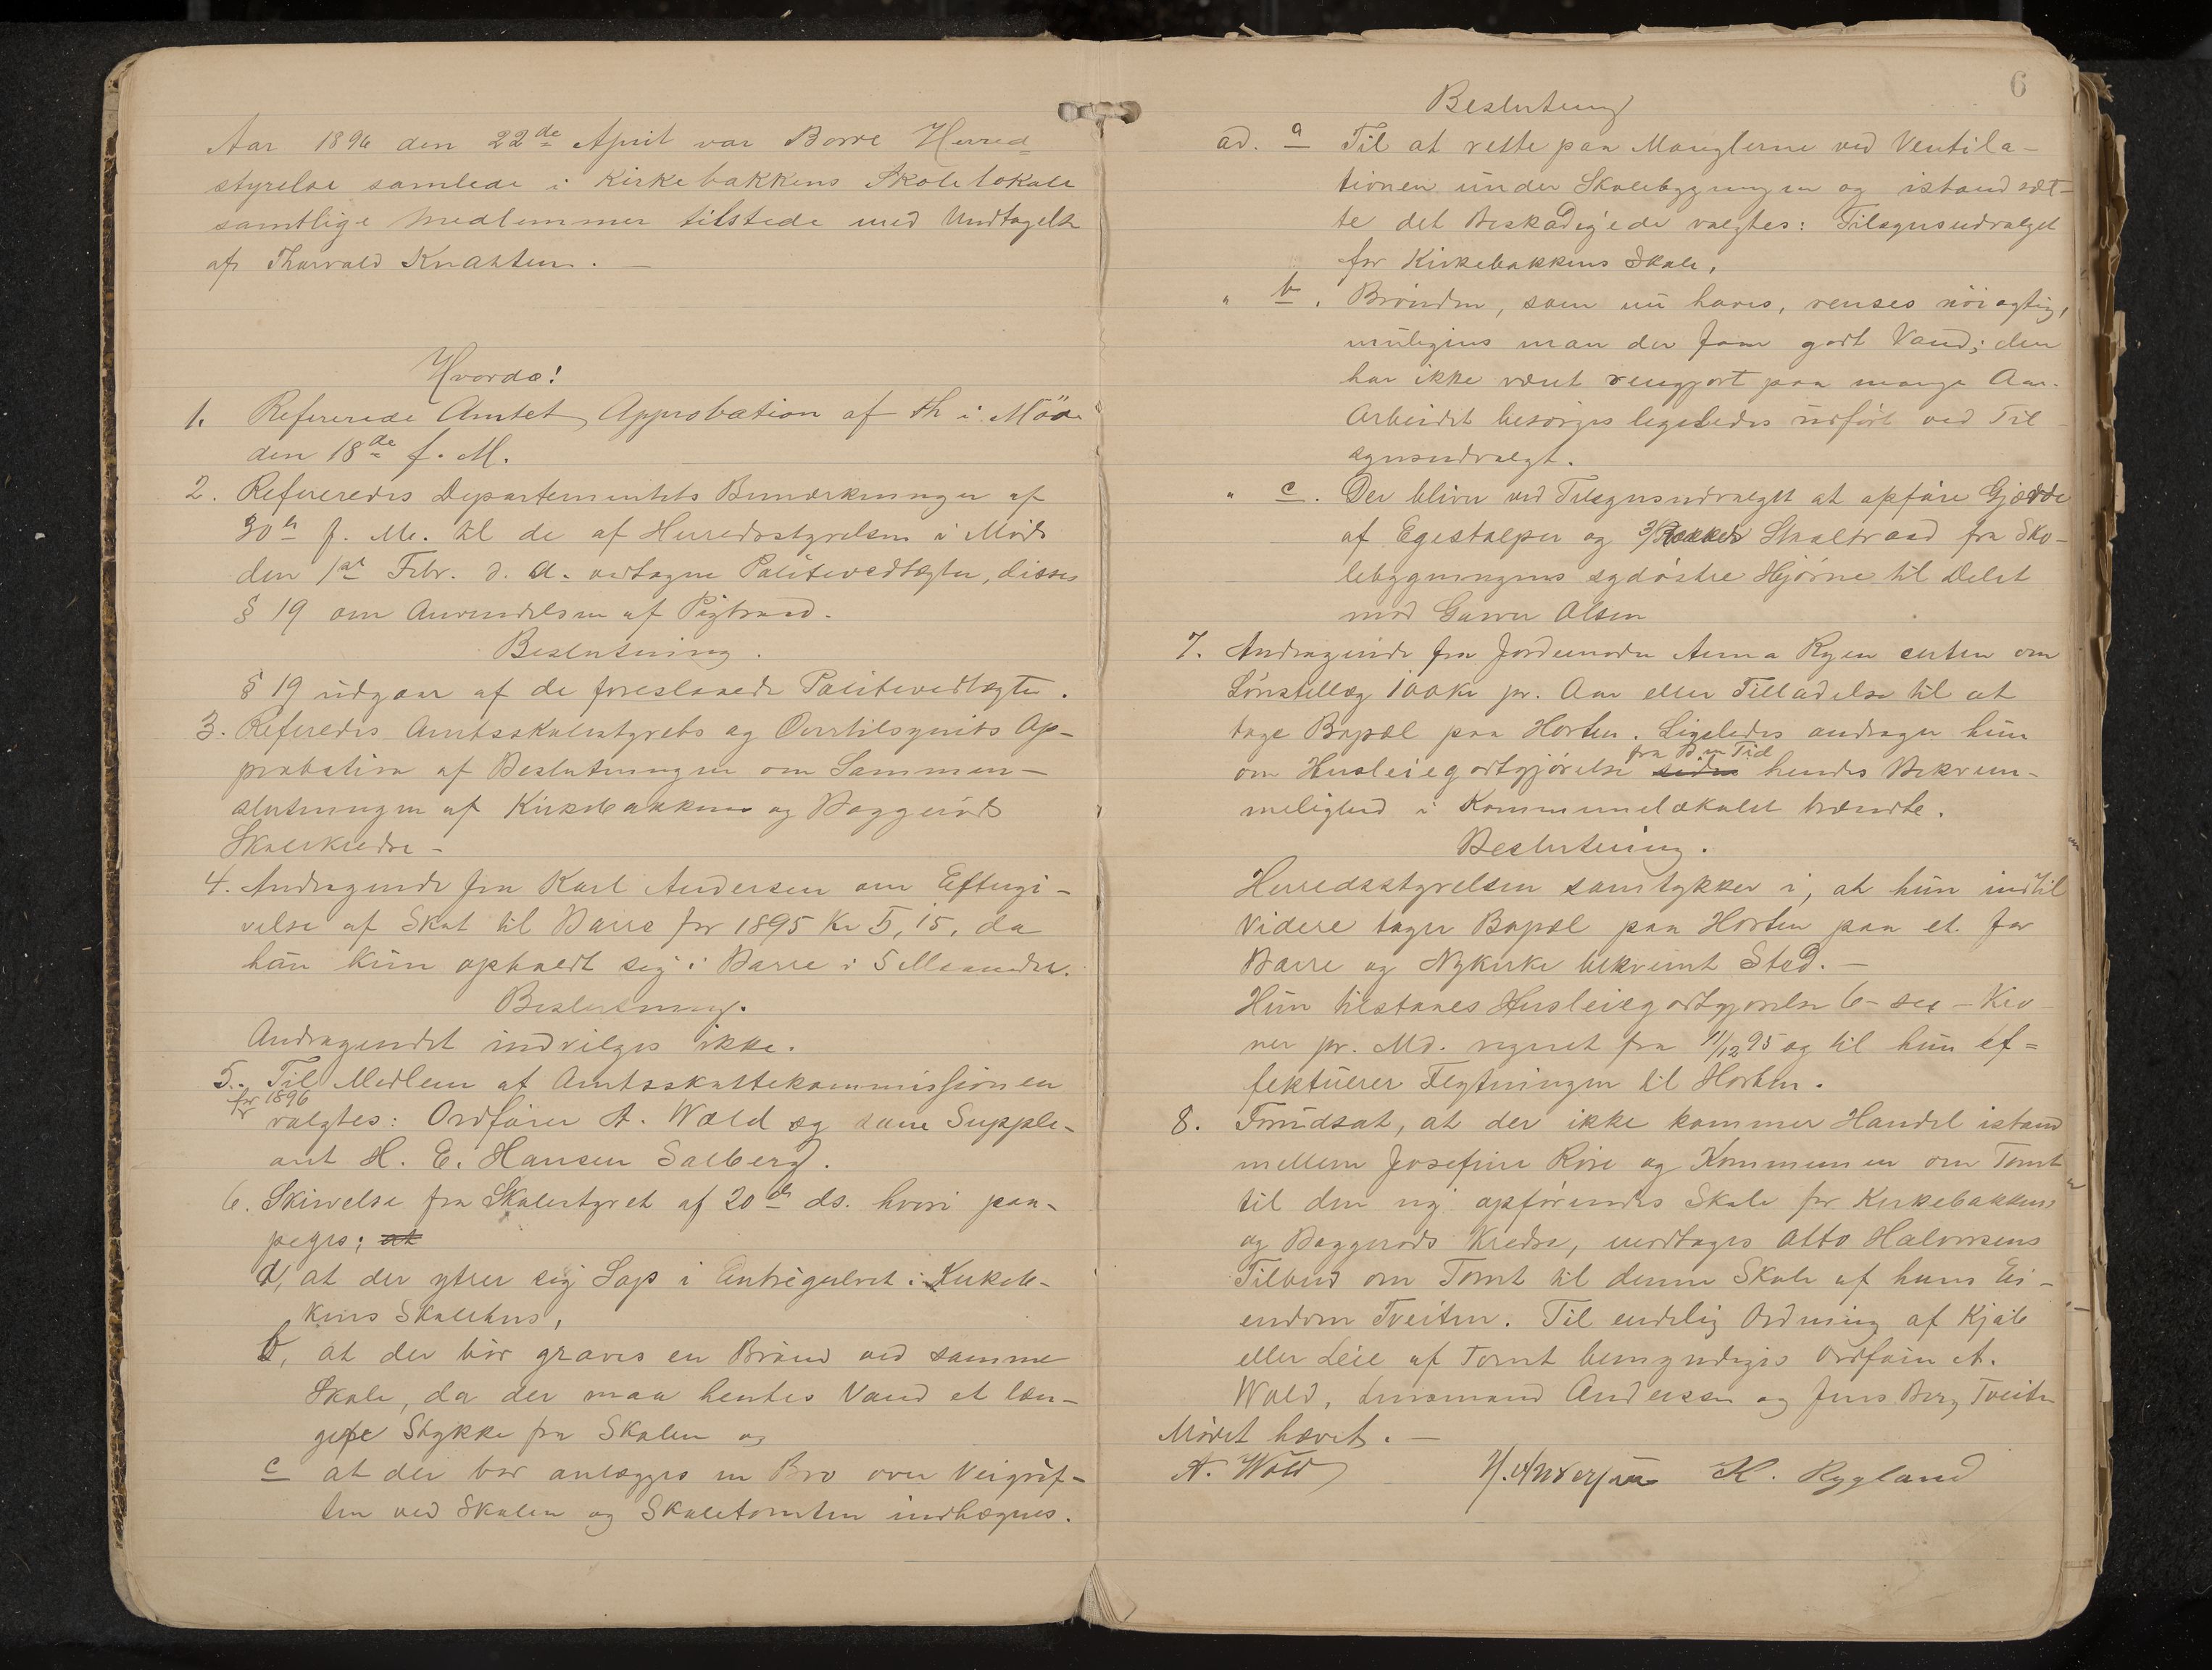 Aar 1896 den 22de April var Borre Herred=
styrelse samlede i Kirkebakkens Skolelokale
samtlige Medlemmer tilstede med Undtagelse
af Thorvald Knahten. —
Hvorda!
1. Refererede Amtets Approbation af th i Möde
den 18de f. M.
2. Refereredes Departementets Bemærkninger af
30te f. M. til de af Herredsstyrelsen i Møde
den 1ste Febr. d. A. vedtagne Politivedtægter, disses
§ 19 om Anvendelsen af Pigtraad.
Beslutning.
§ 19 udgaar af de foreslaaede Politivedtægter.
3. Referedes Amtsskolestyrets og Overtilsynets Ap-
probation af Beslutningen om Sammen-
slutningen af Kirkebakkens og Baggeröds
Skolekredse –
4. Andragende fra Karl Andersen om Eftergi-
velse af Skat til Borre for 1895 Kr 5,15, da
han kun opholdt sig i Borre i 5 Maaneder.
Beslutning.
Andragendet indvilges ikke.
5. Til Medlem af Amtsskattekommissionen
for 1896
valgtes: Ordfører A. Wold og som Supple-
ant H. E. Hansen Solberg.
6. Skrivelse fra Skolestyret af 20de ds. hvori paa-
peges; at
a, at der ytrer sig Sop i Entregulvet i Kirkeb-
kens Skolehus,
b, at der bör graves en Brönd ved samme
Skole, da der maa hentes Vand et læn-
gere Stykke fra Skolen og
c at der bør anlægges en Bro over Veigröf-
ten ved Skolen og Skoletomten indhegnes.
6
Beslutning
ad. a Til at rette paa Manglerne ved Ventila-
tionen under Skolebygningen og istandsæt-
te det Beskadigede valgtes: Tilsynsudvalget
for Kirkebakkens Skole,
" b. Brönden, som nu haves, renses nöiagtig,
muligens man der faar godt Vand; den
har ikke været rengjort paa mange Aar.
Arbeidet besörges ligeledes udfört ved Til-
synsudvalgt.
" c. Der bliver ved Tilsynsudvalget at opföre Gjærde
af Egestolper og 3 Rækker Staaltraad fra Sko-
lebygningens sydöstre Hjörne til Delet
mod Gunver Olsen
7. Andragende fra Jordemoder Anna Ryen enten om
Lönstillæg 100 Kr pr. Aar eller Tilladelse til at
tage Bopæl paa Horten. Ligeledes andrager hun
fra d. Tid
om Husleiegodtgjörelse siden hendes Bekvem-
melighed i Kommunelokalet brændte.
Beslutning.
Herredsstyrelsen samtykker i, at hun indtil
Videre tager Bopæl paa Horten paa et for
Borre og Nykirke bekvemt Sted. —
Hun tilstaaes Husleiegodtgjörelse 6 – sex – Kro-
ner pr. Md. regnet fra 11/12 95 og til hun ef=
fektuerer Flytningen til Horten.
8. Forudsat, at der ikke kommer Handel istand
mellem Josefine Röre og Kommunen om Tomt
til den ny opförendes Skole for Kirkebakkens
og Baggeröds Kredse, modtages Otto Halvorsens
Tilbud om Tomt til denne Skole af hans Ei-
endom Tveiten. Til endelig Ordning af Kjöb
eller Leie af Tomt bemyndiges Ordförer A.
Wold, Lensmand Anderssen og Jens Berg Tveiten
Mödet hævet. —
A. Wold H. Anderssen K. Rygland